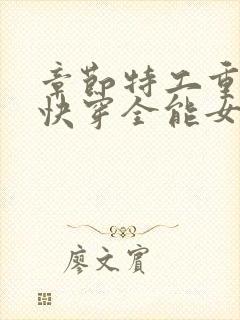 章节特工重
快穿全能女
廖文宾